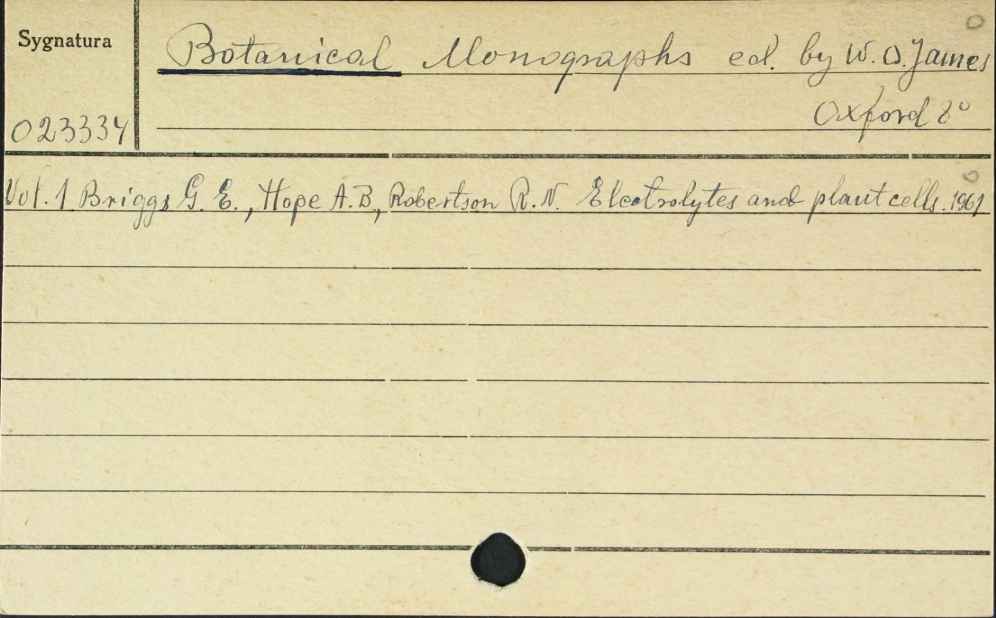 Sygnatura
Botanical Monographs ed. by W. O. James
Oxford 8°
023334
Vol. 1 Briggs G. E., Hope A. B, Robertson R. N. Electrolytes and plant cells. 1961